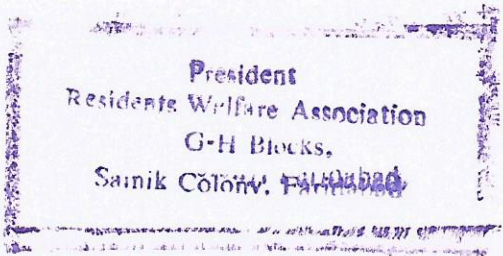 President
Residents Welfare Association
G-H Blocks,
Sainik Colony, Faridabad.